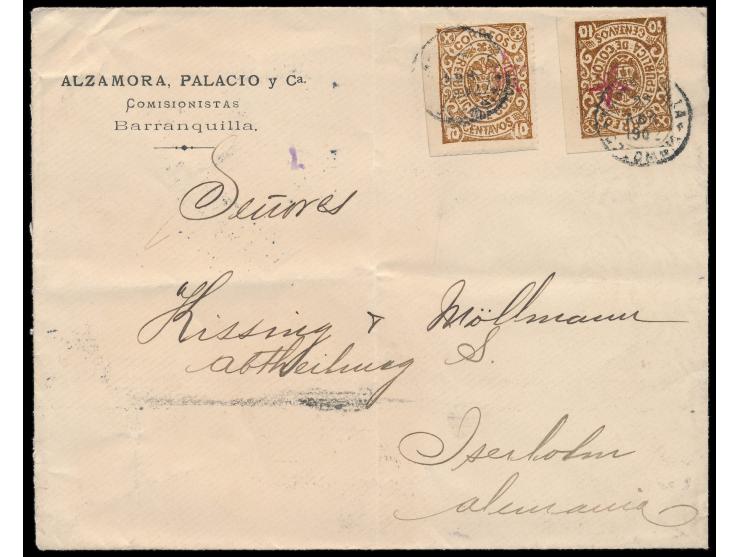 ALZAMORA, PALACIO y Ca.
COMISIONISTAS
Barranquilla.
CORREOS
10 CENTAVOS 10
10 CENTAVOS 10
REPUBLICA DE COLOMBIA
Señores
Kissing & Möllmann
Abtheilung S.
Iserlohn
Alemania